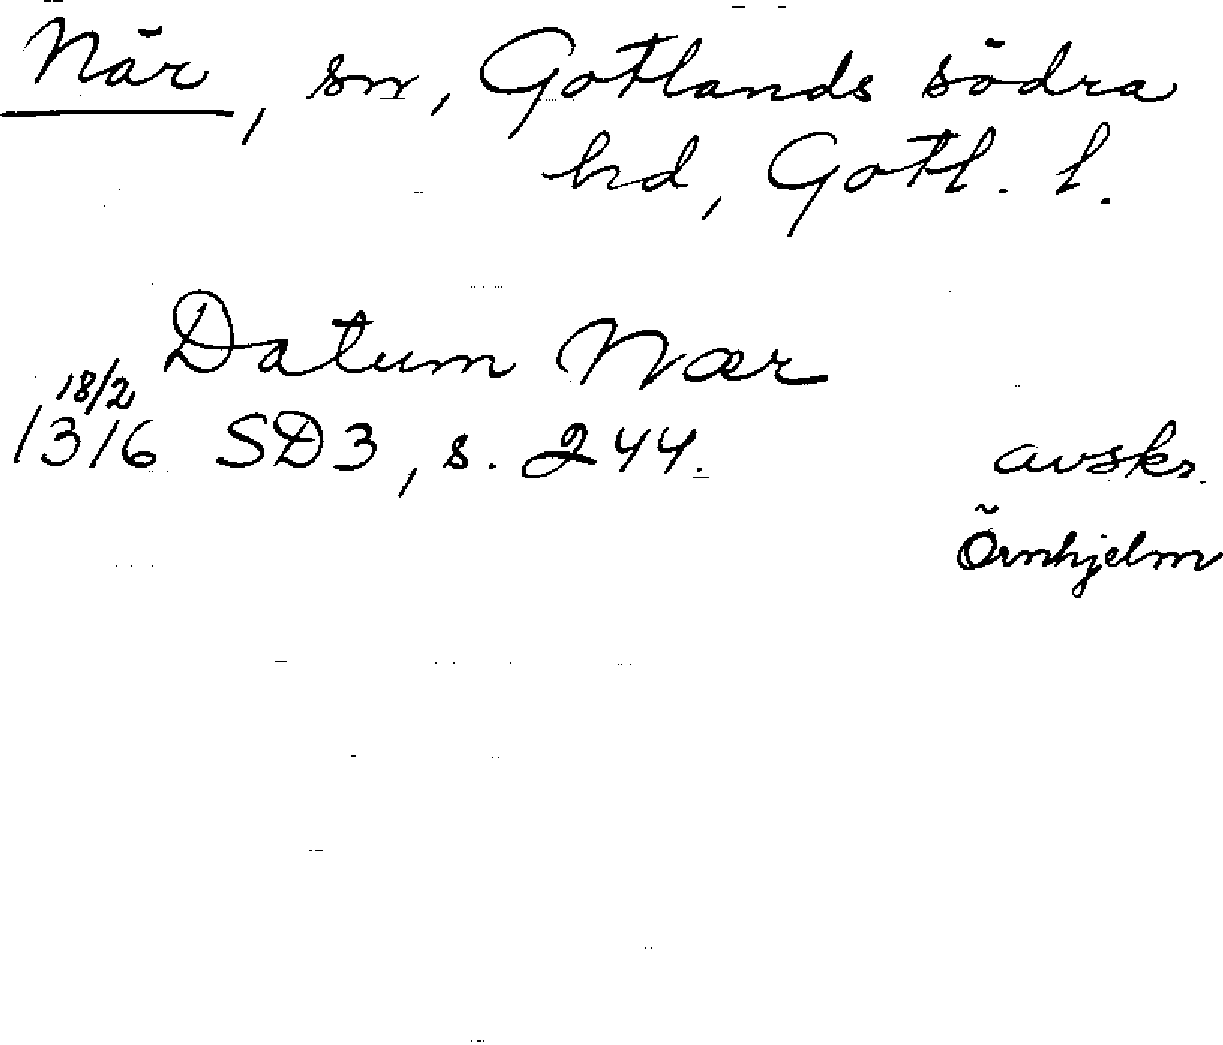 När, sn, Gotlands södra
hd, Gotl. l.
Datum Nær
18/2
1316 SD3, s. 244. avskr.
Örnhjelm